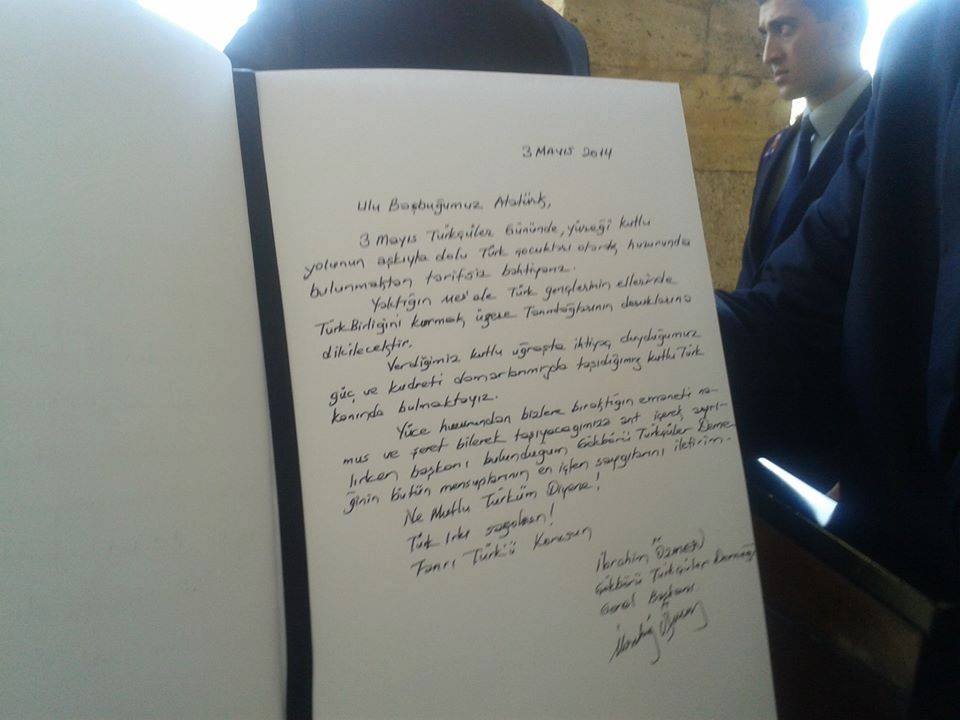 3 MAYIS 2014
Ulu Başbuğumuz Atatürk,
3 Mayıs Türkçüler Gününde, yüreği kutlu
yolunun aşkıyla dolu Türk çocukları olarak huzurunda
bulunmaktan tarifsiz bahtiyarız.
Yaktığın meş'ale Türk gençlerinin ellerinde
Türk Birliğini kurmak üzere Tanrıdağlarının doruklarına
dikilecektir.
Verdiğimiz kutlu uğraşta ihtiyaç duyduğumuz
güç ve kudreti damarlarımızda taşıdığımız kutlu Türk
kanında bulmaktayız.
Yüce huzurundan bizlere bıraktığın emaneti na-
mus ve şeref bilerek taşıyacağımıza ant içerek, ayrı-
lırken başkanı bulunduğum Gökbörü Türkçüler Derne-
ğinin bütün mensuplarının en içten saygılarını iletirim.
Ne Mutlu Türküm Diyene!
Türk Irkı sağolsun!
Tanrı Türk'ü Korusun
İbrahim Özmen
Gökbörü Türkçüler Derneği
Genel Başkanı